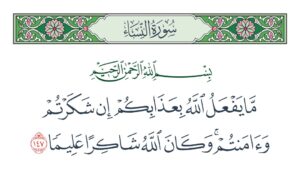 سُورَةُ النِّسَاءِ
بِسْمِ اللَّهِ الرَّحْمَٰنِ الرَّحِيمِ
مَّا يَفْعَلُ اللَّهُ بِعَذَابِكُمْ إِن شَكَرْتُمْ
وَءَامَنتُمْ ۚ وَكَانَ اللَّهُ شَاكِرًا عَلِيمًا ١٤٧